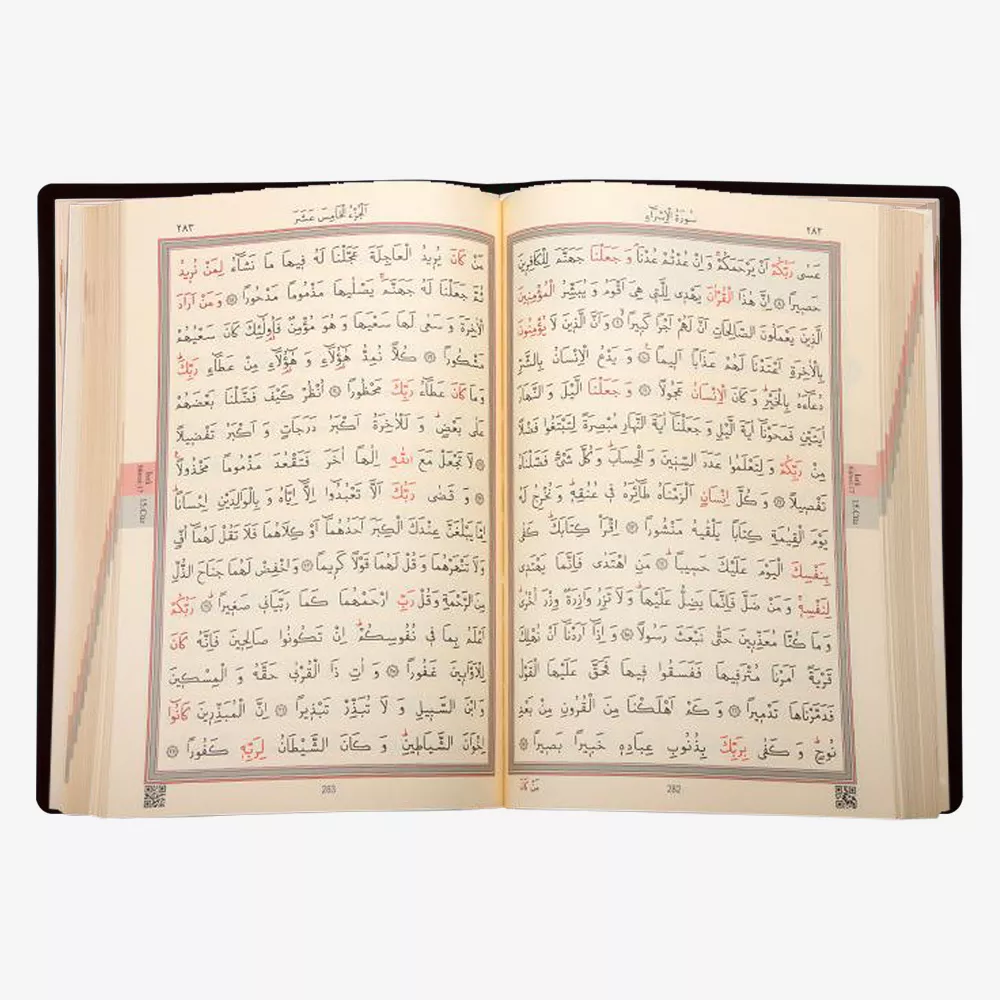 سُورَةُ الْاِسْرَاءِ
٢٨٢
عَسٰى رَبُّكُمْ اَنْ يَرْحَمَكُمْۚ وَاِنْ عُدْتُمْ عُدْنَاۢ وَ جَعَلْنَا جَهَنَّمَ لِلْكَافِر۪ينَ
حَص۪يرًا ۝٨ اِنَّ هٰذَا الْقُرْاٰنَ يَهْد۪ى لِلَّت۪ى هِىَ اَقْوَمُ وَ يُبَشِّرُ الْمُؤْمِن۪ينَ
الَّذ۪ينَ يَعْمَلُونَ الصَّالِحَاتِ اَنَّ لَهُمْ اَجْرًا كَب۪يرًاۙ ۝٩ وَاَنَّ الَّذ۪ينَ لَا يُؤْمِنُونَ
بِالْاٰخِرَةِ اَعْتَدْنَا لَهُمْ عَذَابًا اَل۪يمًا۟ ۝١٠ وَ يَدْعُ الْاِنْسَانُ بِالشَّرِّ
دُعَٓاءَهُ بِالْخَيْرِۜ وَ كَانَ الْاِنْسَانُ عَجُولًا ۝١١ وَ جَعَلْنَا الَّيْلَ وَ النَّهَارَ
اٰيَتَيْنِ فَمَحَوْنَٓا اٰيَةَ الَّيْلِ وَ جَعَلْنَٓا اٰيَةَ النَّهَارِ مُبْصِرَةً لِتَبْتَغُوا فَضْلًا
مِنْ رَبِّكُمْ وَ لِتَعْلَمُوا عَدَدَ السِّن۪ينَ وَ الْحِسَابَۜ وَ كُلَّ شَىْءٍ فَصَّلْنَاهُ
تَفْص۪يلًا ۝١٢ وَ كُلَّ اِنْسَانٍ اَلْزَمْنَاهُ طَٓائِرَهُ ف۪ى عُنُقِه۪ۜ وَ نُخْرِجُ لَهُ
يَوْمَ الْقِيٰمَةِ كِتَابًا يَلْقٰيهُ مَنْشُورًا ۝١٣ اِقْرَاْ كِتَابَكَۜ كَفٰى
بِنَفْسِكَ الْيَوْمَ عَلَيْكَ حَس۪يبًاۜ ۝١٤ مَنِ اهْتَدٰى فَاِنَّمَا يَهْتَد۪ى
لِنَفْسِه۪ۚ وَ مَنْ ضَلَّ فَاِنَّمَا يَضِلُّ عَلَيْهَاۜ وَ لَا تَزِرُ وَازِرَةٌ وِزْرَ اُخْرٰىۜ
وَ مَا كُنَّا مُعَذِّب۪ينَ حَتّٰى نَبْعَثَ رَسُولًا ۝١٥ وَ اِذَٓا اَرَدْنَٓا اَنْ نُهْلِكَ
قَرْيَةً اَمَرْنَا مُتْرَف۪يهَا فَفَسَقُوا ف۪يهَا فَحَقَّ عَلَيْهَا الْقَوْلُ
فَدَمَّرْنَاهَا تَدْم۪يرًا ۝١٦ وَ كَمْ اَهْلَكْنَا مِنَ الْقُرُونِ مِنْ بَعْدِ
نُوحٍۜ وَ كَفٰى بِرَبِّكَ بِذُنُوبِ عِبَادِه۪ خَب۪يرًا بَص۪يرًا ۝١٧
282
مَنْ كَانَ
15.Cüz
اَلْجُزْءُ الْخَامِسَ عَشَرَ
٢٨٣
مَنْ كَانَ يُر۪يدُ الْعَاجِلَةَ عَجَّلْنَا لَهُ ف۪يهَا مَا نَشَٓاءُ لِمَنْ نُر۪يدُ
ثُمَّ جَعَلْنَا لَهُ جَهَنَّمَۚ يَصْلٰيهَا مَذْمُومًا مَدْحُورًا ۝١٨ وَ مَنْ اَرَادَ
الْاٰخِرَةَ وَ سَعٰى لَهَا سَعْيَهَا وَ هُوَ مُؤْمِنٌ فَاُو۬لٰٓئِكَ كَانَ سَعْيُهُمْ
مَشْكُورًا ۝١٩ كُلًّا نُمِدُّ هٰٓؤُ۬لَٓاءِ وَ هٰٓؤُ۬لَٓاءِ مِنْ عَطَٓاءِ رَبِّكَۜ
وَ مَا كَانَ عَطَٓاءُ رَبِّكَ مَحْظُورًا ۝٢٠ اُنْظُرْ كَيْفَ فَضَّلْنَا بَعْضَهُمْ
عَلٰى بَعْضٍۜ وَ لَلْاٰخِرَةُ اَكْبَرُ دَرَجَاتٍ وَ اَكْبَرُ تَفْض۪يلًا
۝٢١ لَا تَجْعَلْ مَعَ اللّٰهِ اِلٰهًا اٰخَرَ فَتَقْعُدَ مَذْمُومًا مَخْذُولًا۟
۝٢٢ وَ قَضٰى رَبُّكَ اَلَّا تَعْبُدُٓوا اِلَّٓا اِيَّاهُ وَ بِالْوَالِدَيْنِ اِحْسَانًاۜ
اِمَّا يَبْلُغَنَّ عِنْدَكَ الْكِبَرَ اَحَدُهُمَٓا اَوْ كِلَاهُمَا فَلَا تَقُلْ لَهُمَٓا اُفٍّ
وَلَا تَنْهَرْهُمَا وَ قُلْ لَهُمَا قَوْلًا كَر۪يمًا ۝٢٣ وَ اخْفِضْ لَهُمَا جَنَاحَ الذُّلِّ
مِنَ الرَّحْمَةِ وَ قُلْ رَبِّ ارْحَمْهُمَا كَمَا رَبَّيَان۪ى صَغ۪يرًاۜ ۝٢٤ رَبُّكُمْ
اَعْلَمُ بِمَا ف۪ى نُفُوسِكُمْۜ اِنْ تَكُونُوا صَالِح۪ينَ فَاِنَّهُ كَانَ
لِلْاَوَّاب۪ينَ غَفُورًا ۝٢٥ وَ اٰتِ ذَا الْقُرْبٰى حَقَّهُ وَ الْمِسْك۪ينَ
وَ ابْنَ السَّب۪يلِ وَ لَا تُبَذِّرْ تَبْذ۪يرًا ۝٢٦ اِنَّ الْمُبَذِّر۪ينَ كَانُٓوا
اِخْوَانَ الشَّيَاط۪ينِۜ وَ كَانَ الشَّيْطَانُ لِرَبِّه۪ كَفُورًا ۝٢٧
283
15.Cüz